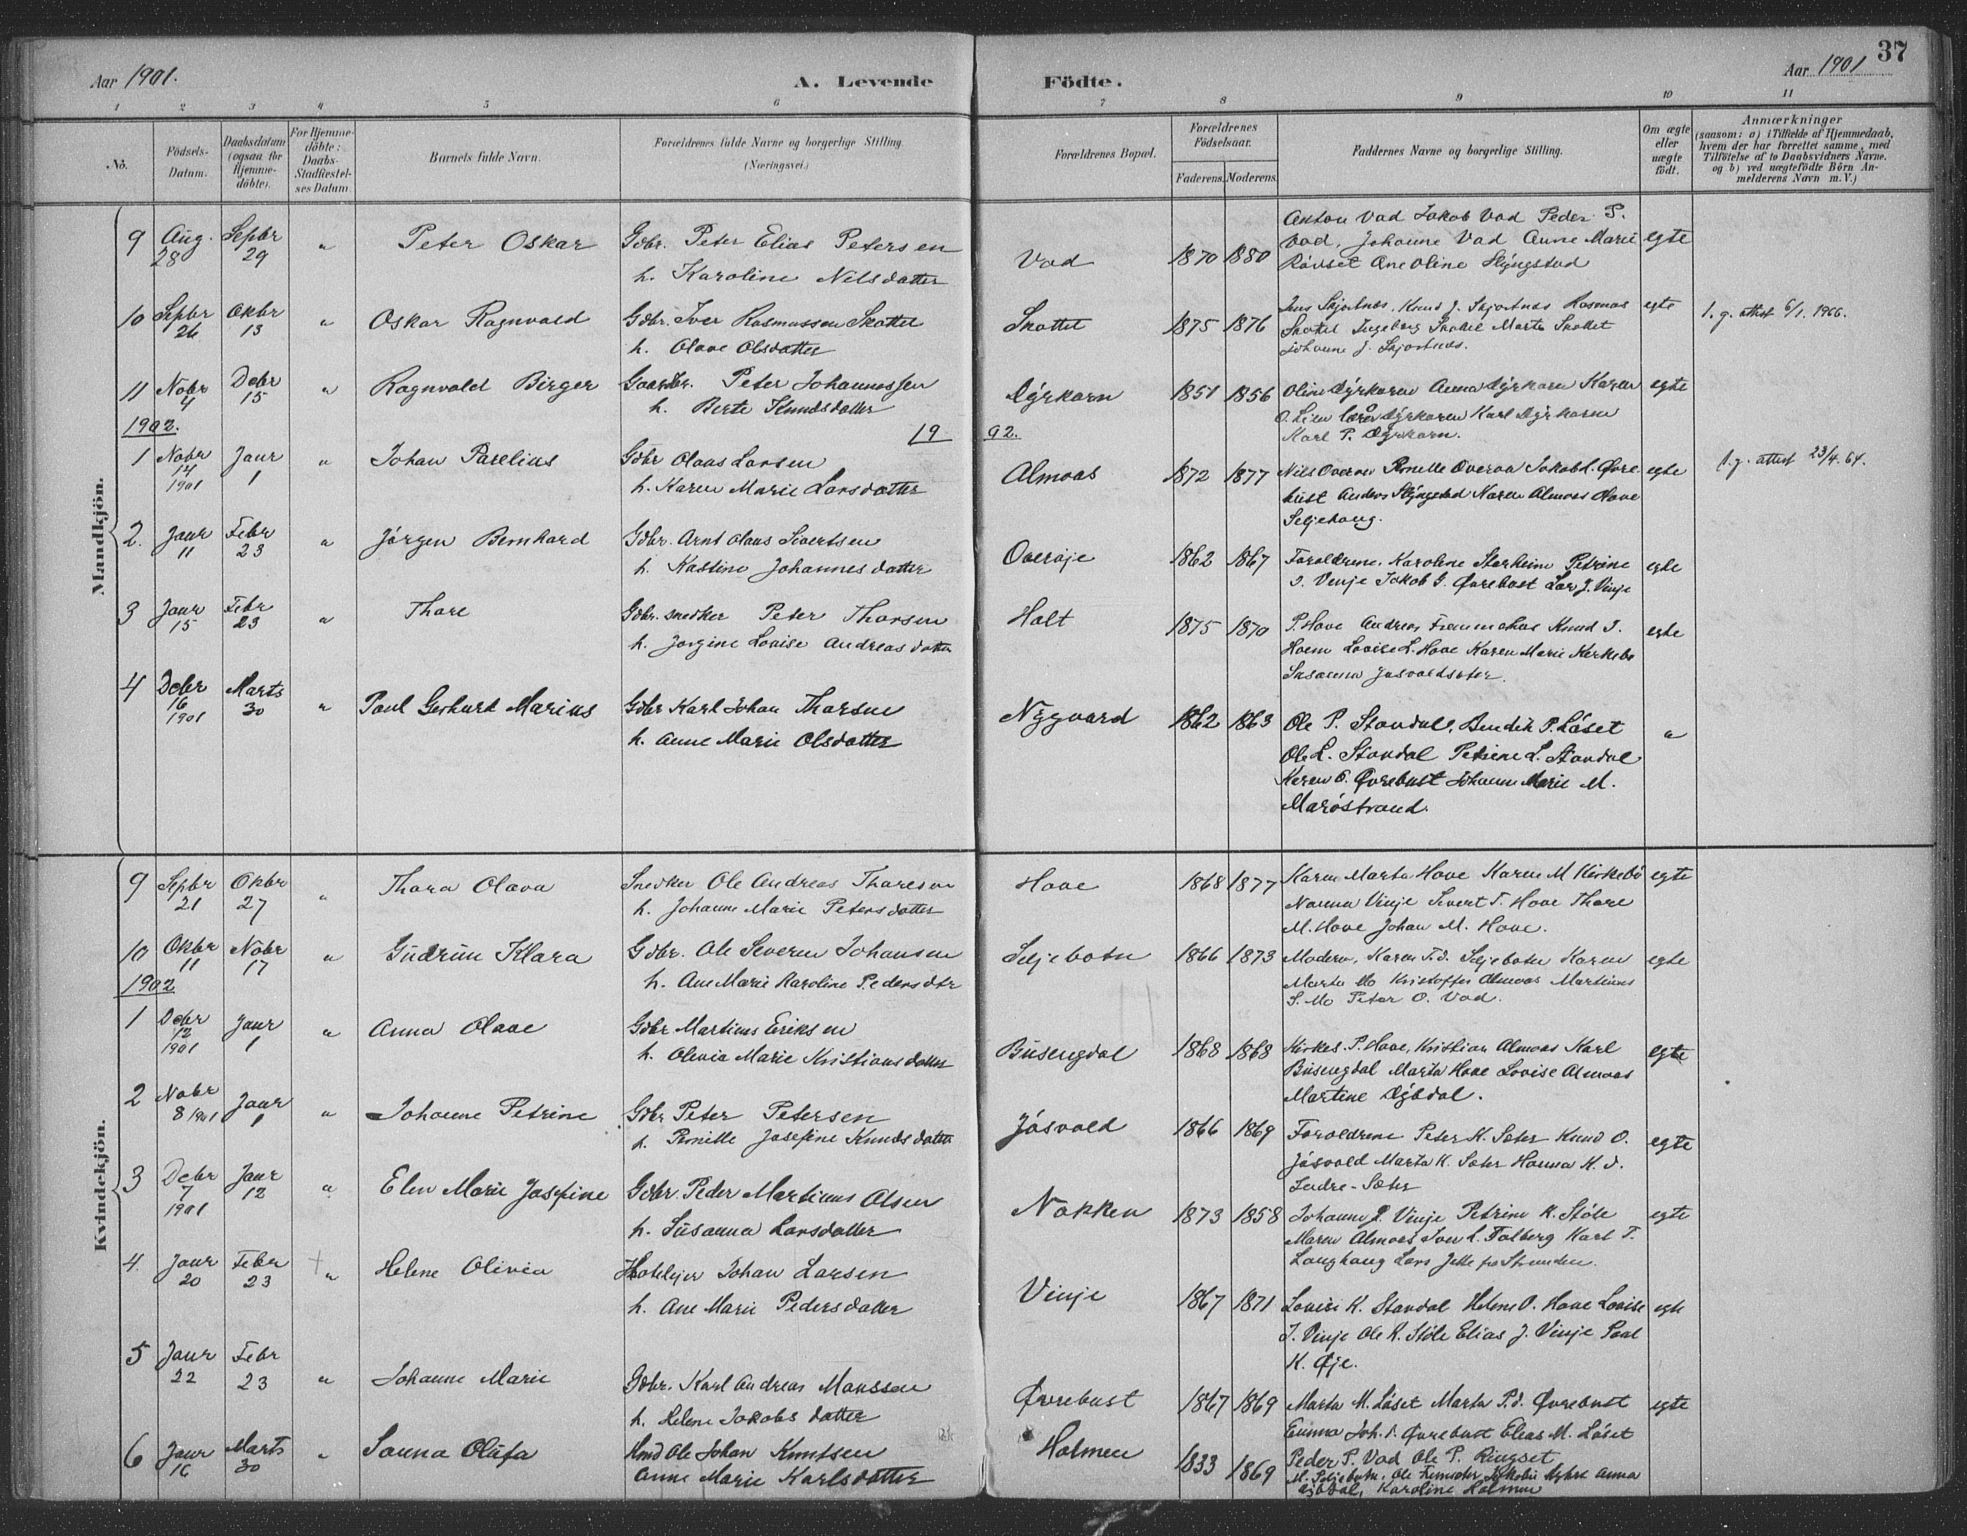 Aar 1901. A. Levende Födte. Aar 1901 37
1 2 3 4 5 6 7 8 9 10 11
No.
Födsels-Datum.
Daabsdatum (ogsaa for Hjemme-döbte).
For Hjemme-döbte: Daabs-Stadfæstel-ses Datum
Barnets fulde Navn.
Forældrenes fulde Navne og borgerlige Stilling.
(Næringsvei.)
Forældrenes Bopæl.
Forældrenes Födselsaar.
Faderens. Moderens.
Faddernes Navne og borgerlige Stilling.
Om ægte eller uægte födt.
Anmærkninger
(saasom: a) i Tilfælde af Hjemmedaab, hvem der har forrettet samme, med Tilföielse af to Daabsvidners Navne, og b) ved uægtefödte Börn An-melderens Navn m.V.)
Mandkjön.
9 Aug. 28 Sepbr 29 " Peter Oskar Gdbr. Peter Elias Petersen
h. Karoline Nilsdatter
Vad 1870 1880
Anton Vad Jakob Vad Peder P.
Vad, Johanne Vad Anne Marie
Røvset Ane Oline Slyngstad
egte
10 Sepbr 26 Okbr 13 " Oskar Ragnvald Gdbr. Iver Rasmussen Skottet
h. Olave Olsdatter
Skottet 1875 1876
Jens Skjortnes, Knud J. Skjortnes Rasmus
Skottet Ingeborg Skottet Marta Skottet
Johanne J. Skjortnes.
egte
l. g. attest 6/1. 1966.
11 Nobr 4 Debr 15 " Ragnvald Birger Gaardbr. Peter Johannessen
h. Berte Knudsdatter
Dyrkorn 1851 1856
Oline Dyrkoren Anna Dyrkorn Karen
O. Lien Dyrkoren Karl Dyrkoren
Karl P. Dyrkorn.
egte
1902. 19 02.
1 Nobr 14 1901 Janr 1 " Johan Parelius Gdbr Olaus Larsen
h. Karen Marie Larsdatter
Almoas 1872 1877
Nils Overøie Pernille Overaa Jakob L. Øvre
bust Anders Slyngstad Karen Almoas Hove
Seljehaug.
egte
l. g. attest 23/4. 64.
2. Janr 11 Febr 23 " Jørgen Bernhard Gdbr. Arnt Olaus Sivertsen
h. Kastine Johannesdatter
Overøje 1862 1867
Foraldrene. Karoline Storheim Petrine
J. Vinje Jakob G. Øvrebust Lars J. Vinje
egte
3 Janr 15 Febr 23 " Thore Gdbr. snedker Peter Thorsen
h. Jorgine Lovise Andreasdatter
Holt 1875 1870
P. Hove Andreas Fremmehus Knud J.
Hoem Lovise L. Hove Karen Marie Kirkebø
Susanna Jøsvoldsæter.
egte
4 Debr 16 1901 Marts 30 " Paul Gerhard Marius Gdbr Karl Johan Thorsen
h. Anne Marie Olsdatter
Nygaard 1862 1863
Ole P. Standal, Bendik P. Løset
Ole L. Standal Petrine L. Standal
Karen O. Øvrebust Johanne Marie M.
Marøstrand.
"
Kvindekjön.
9 Sepbr 21 Okbr 27 " Thora Olava Snedker Ole Andreas Thoresen
h. Johanne Marie Petersdatter
Hove 1868 1877
Karen Marta Hove Karen M Kirkebø
Nanna Vinje Sivert T. Hove Thore
M. Hove Johan M. Hove.
egte
10 Okbr 11 Nobr 17 " Gudrun Klara Gdbr. Ole Severin Johansen
h. Ane Marie Karoline Pedersdtr
Seljebotn 1866 1873
Moderen, Karen T.d. Seljebotn Karen
Marta Mo Kristoffer Almoas Martinus
S. Mo Peter O. Vad.
egte
1902
1 Debr 12 1901 Janr 1 " Anna Olave Gdbr Martinus Eriksen
h. Olivia Marie Kristiansdatter
Busengdal 1868 1868
Kirkes. P. Hove, Kristian Almoas Karl
Busengdal Marta Hove Lovise Almoas
Martine Døbdal.
egte
2 Nobr 8 1901 Janr 1 " Johanne Petrine Gdbr Peter Petersen
h. Pernille Josefine Knudsdatter
Jøsvold 1866 1869
Foraldrene Peter K. Sæter Knud O.
Jøsvold Marta K. Sæter Hanna K. d.
Indre-Sæter
egte
3 Debr 7 1901 Janr 12 " Elen Marie Josefine Gdbr. Peder Martinus Olsen
h. Susanna Larsdatter
Nakken 1873 1858
Johanne P. Vinje Petrine K. Støle
Maren Almoas Iver L. Folberg Karl T.
Langhaug Lars Jelle fra Stranden.
egte
4. Janr 20 Febr 23 + " Helene Olivia Hotelejer Johan Larsen
h. Ane Marie Pedersdatter
Vinje 1867 1871
Lovise K. Standal Helene O. Hove Lovise
J. Vinje Ole K. Støle Elias J. Vinje Paul
K. Øje.
egte
5 Janr 22 Febr 23 " Johanne Marie Gdbr. Karl Andreas Monssen
h. Helene Jakobsdatter
Øvrebust 1867 1869
Marta M. Løset Marta P.d. Øvrebust
Emma Joh. d. Øvrebust Elias M. Løset
egte
6 Janr 16 Marts 30 " Sanna Olufa Hmd Ole Johan Knutsen
Anne Marie Karlsdatter
Holmen 1833 1869
Peder P. Vad Ole P. Ringset
M. Seljebotn. Ole Anna
Karoline Holmen